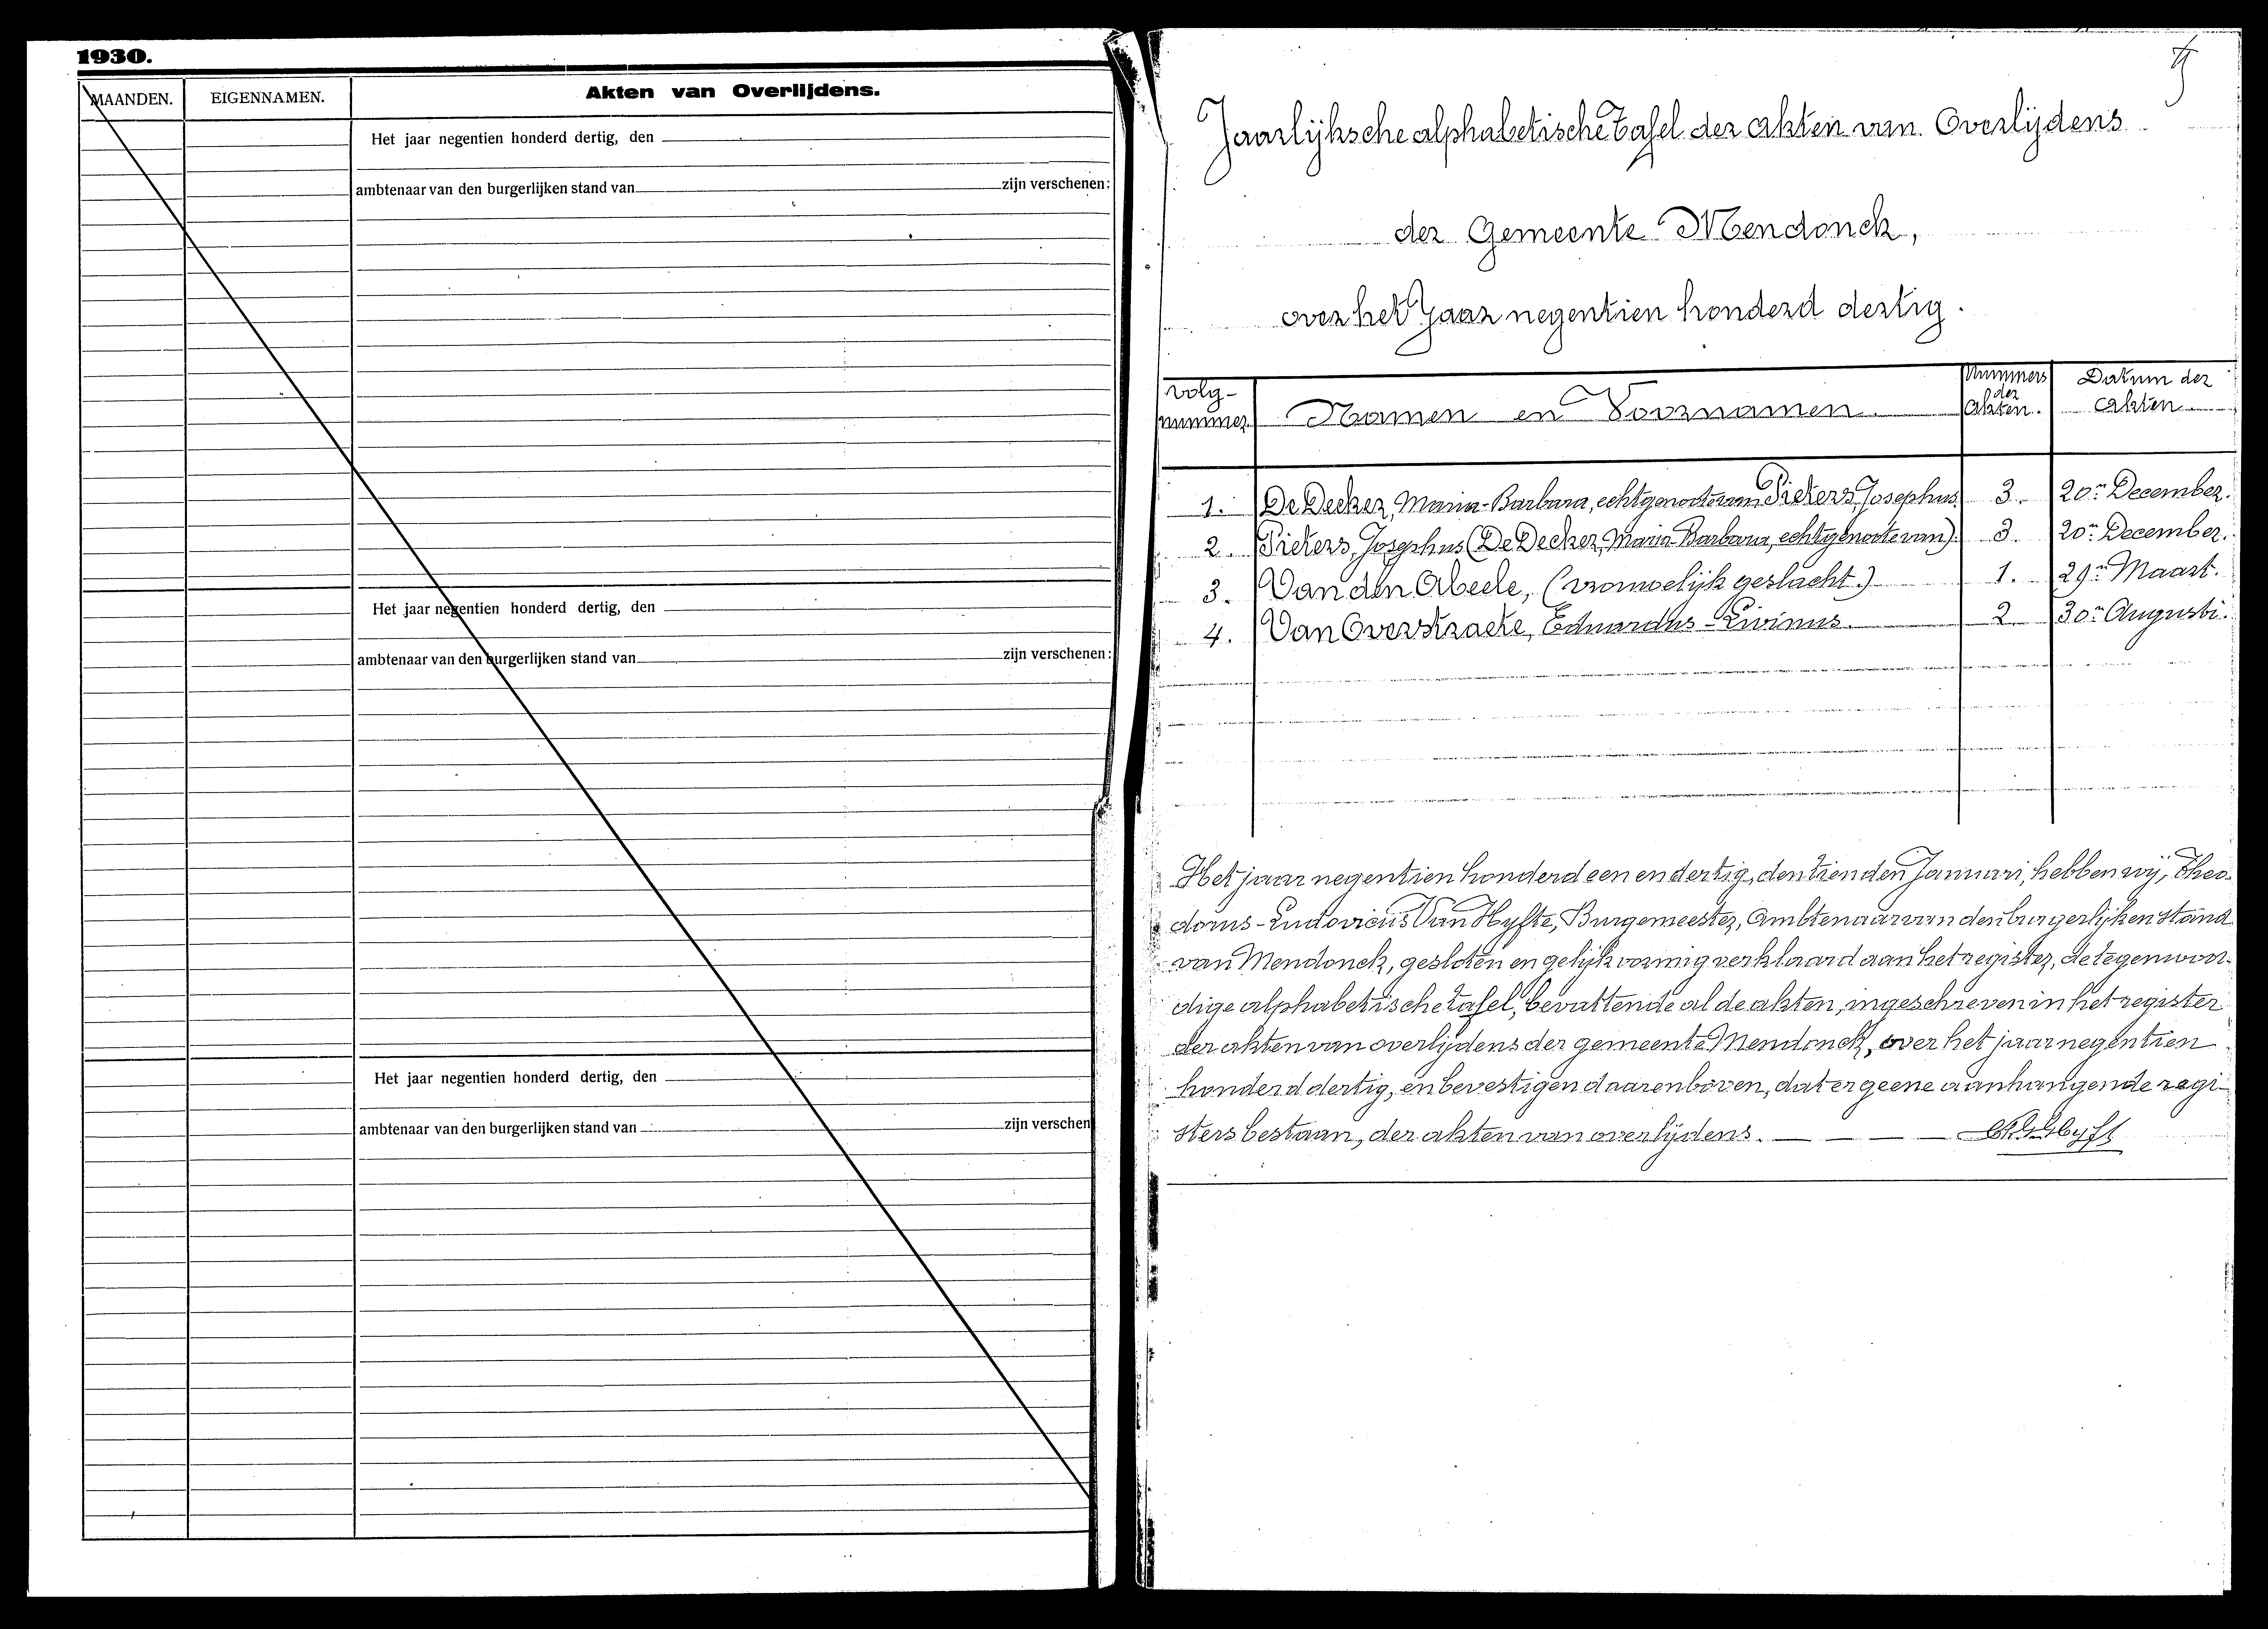 1930.
MAANDEN. EIGENNAMEN. Akten van Overlijdens.
Het jaar negentien honderd dertig, den
ambtenaar van den burgerlijken stand van zijn verschenen:
Het jaar negentien honderd dertig, den
ambtenaar van den burgerlijken stand van zijn verschenen:
Het jaar negentien honderd dertig, den
ambtenaar van den burgerlijken stand van zijn verschen
Jaarlijksche alphabetische tafel der akten van Overlijdens
der Gemeente Mendonck,
over het Jaar negentien honderd dertig.
Volg-nummer Namen en Voornamen Nummers der Akten. Datum der Akten
1. De Decker, Maria-Barbara, echtgenoote van Pieters, Josephus 3. 20n December.
2. Pieters, Josephus (De Decker, Maria-Barbara, echtgenoote van) 3. 20n December.
3. Van den Abeele, (vrouwelijk geslacht.) 1. 29n Maart.
4. Van Overstraete, Eduardus-Livinus. 2 30n Augusti.
Het jaar negentien honderd een en dertig, den tienden Januari, hebben wij, Theo-
dorus-Ludovicus Van Hyfte, Burgemeester, Ambtenaar van den burgerlijken stand
van Mendonck, gesloten en gelijkvormig verklaard aan het register, de tegenwoor-
dige alphabetische tafel, bevattende al de akten, ingeschreven in het register
der akten van overlijdens der gemeente Mendonck, over het jaar negentien
honderd dertig, en bevestigen daarenboven, dat er geene aanhangende regi-
sters bestaan, der akten van overlijdens.